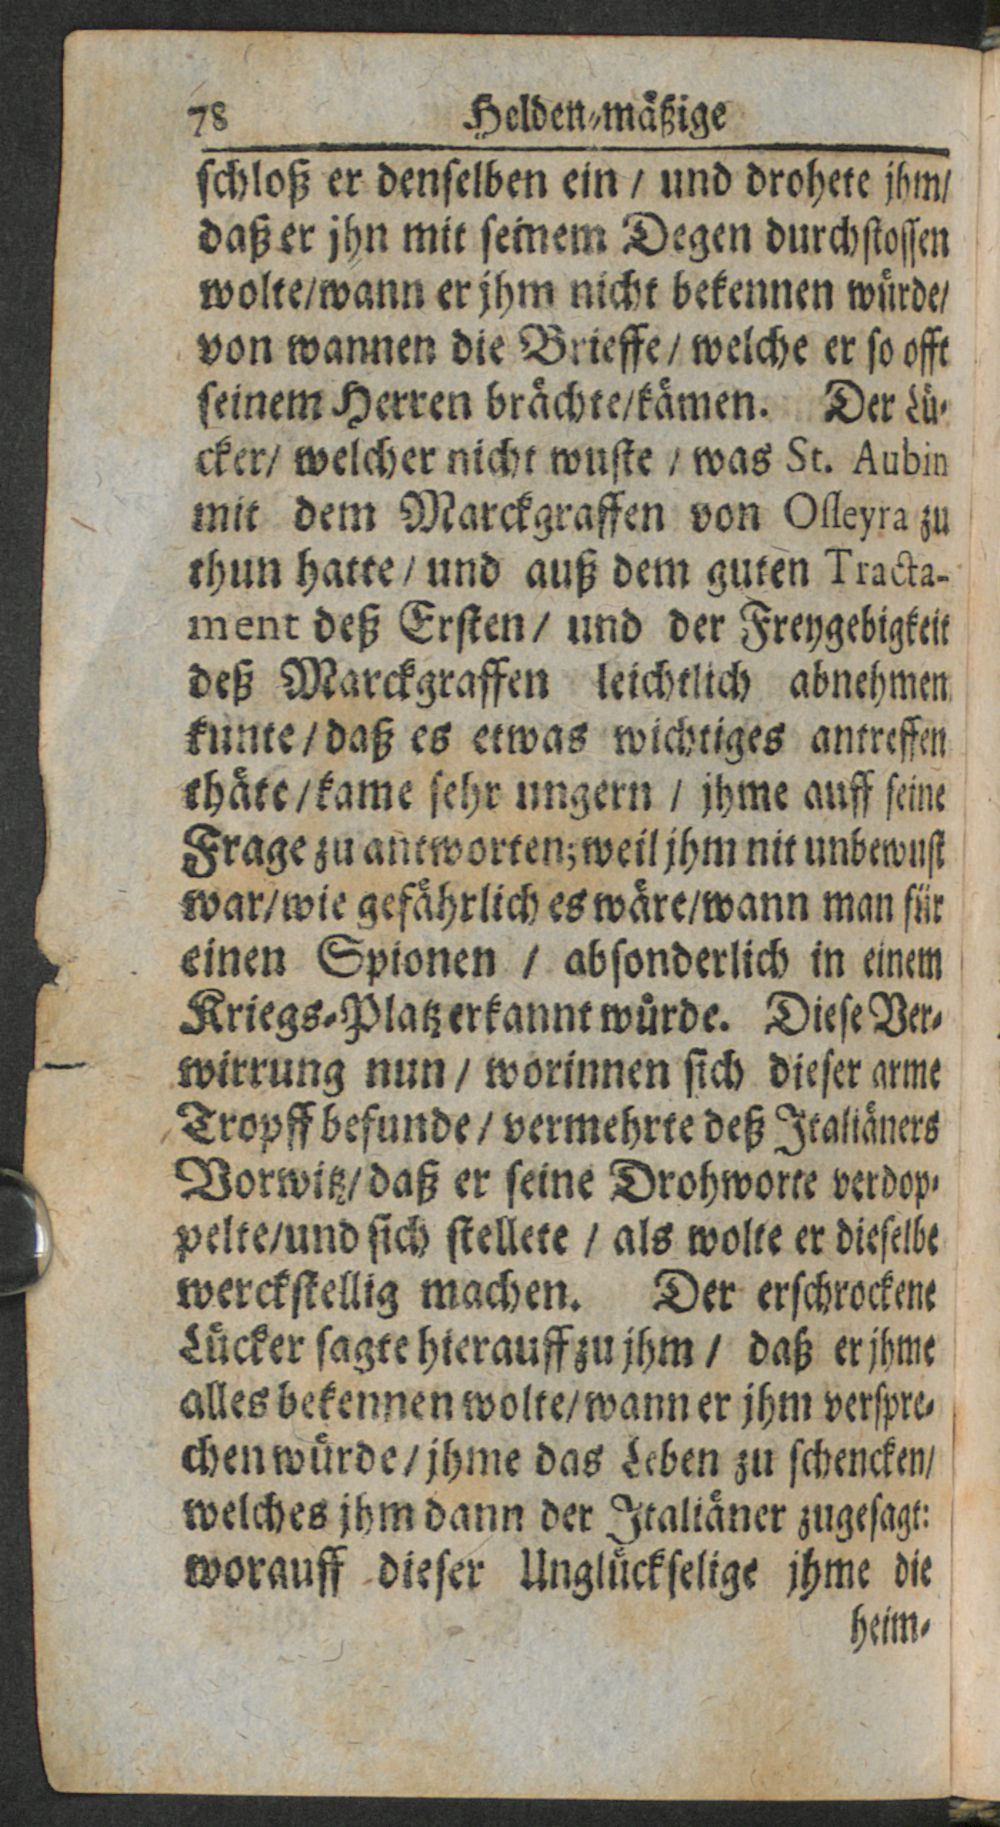 78 Helden-mäßige
schloß er denselben ein / und drohete jhm/
daß er jhn mit seinem Degen durchstossen
wolte/wann er jhm nicht bekennen würde/
von wannen die Brieffe / welche er so offt
seinem Herren brächte/kämen. Der Lü-
cker/ welcher nicht wuste / was St. Aubin
mit dem Marckgraffen von Osleyra zu
thun hatte / und auß dem guten Tracta-
ment deß Ersten / und der Freygebigkeit
deß Marckgraffen leichtlich abnehmen
kunte / daß es etwas wichtiges antreffen
thäte / kame sehr ungern / jhme auff seine
Frage zu antworten; weil jhm nit unbewust
war/wie gefährlich es wäre/wann man für
einen Spionen / absonderlich in einem
Kriegs-Platz erkannt würde. Diese Ver-
wirrung nun / worinnen sich dieser arme
Tropff befunde / vermehrte deß Italiäners
Vorwitz/ daß er seine Drohworte verdop-
pelte/und sich stellete / als wolte er dieselbe
werckstellig machen. Der erschrockene
Lücker sagte hierauff zu jhm / daß er jhme
alles bekennen wolte/wann er jhm verspre-
chen würde / jhme das Leben zu schencken/
welches jhm dann der Italiäner zugesagt:
worauff dieser Unglückselige jhme die
heim-